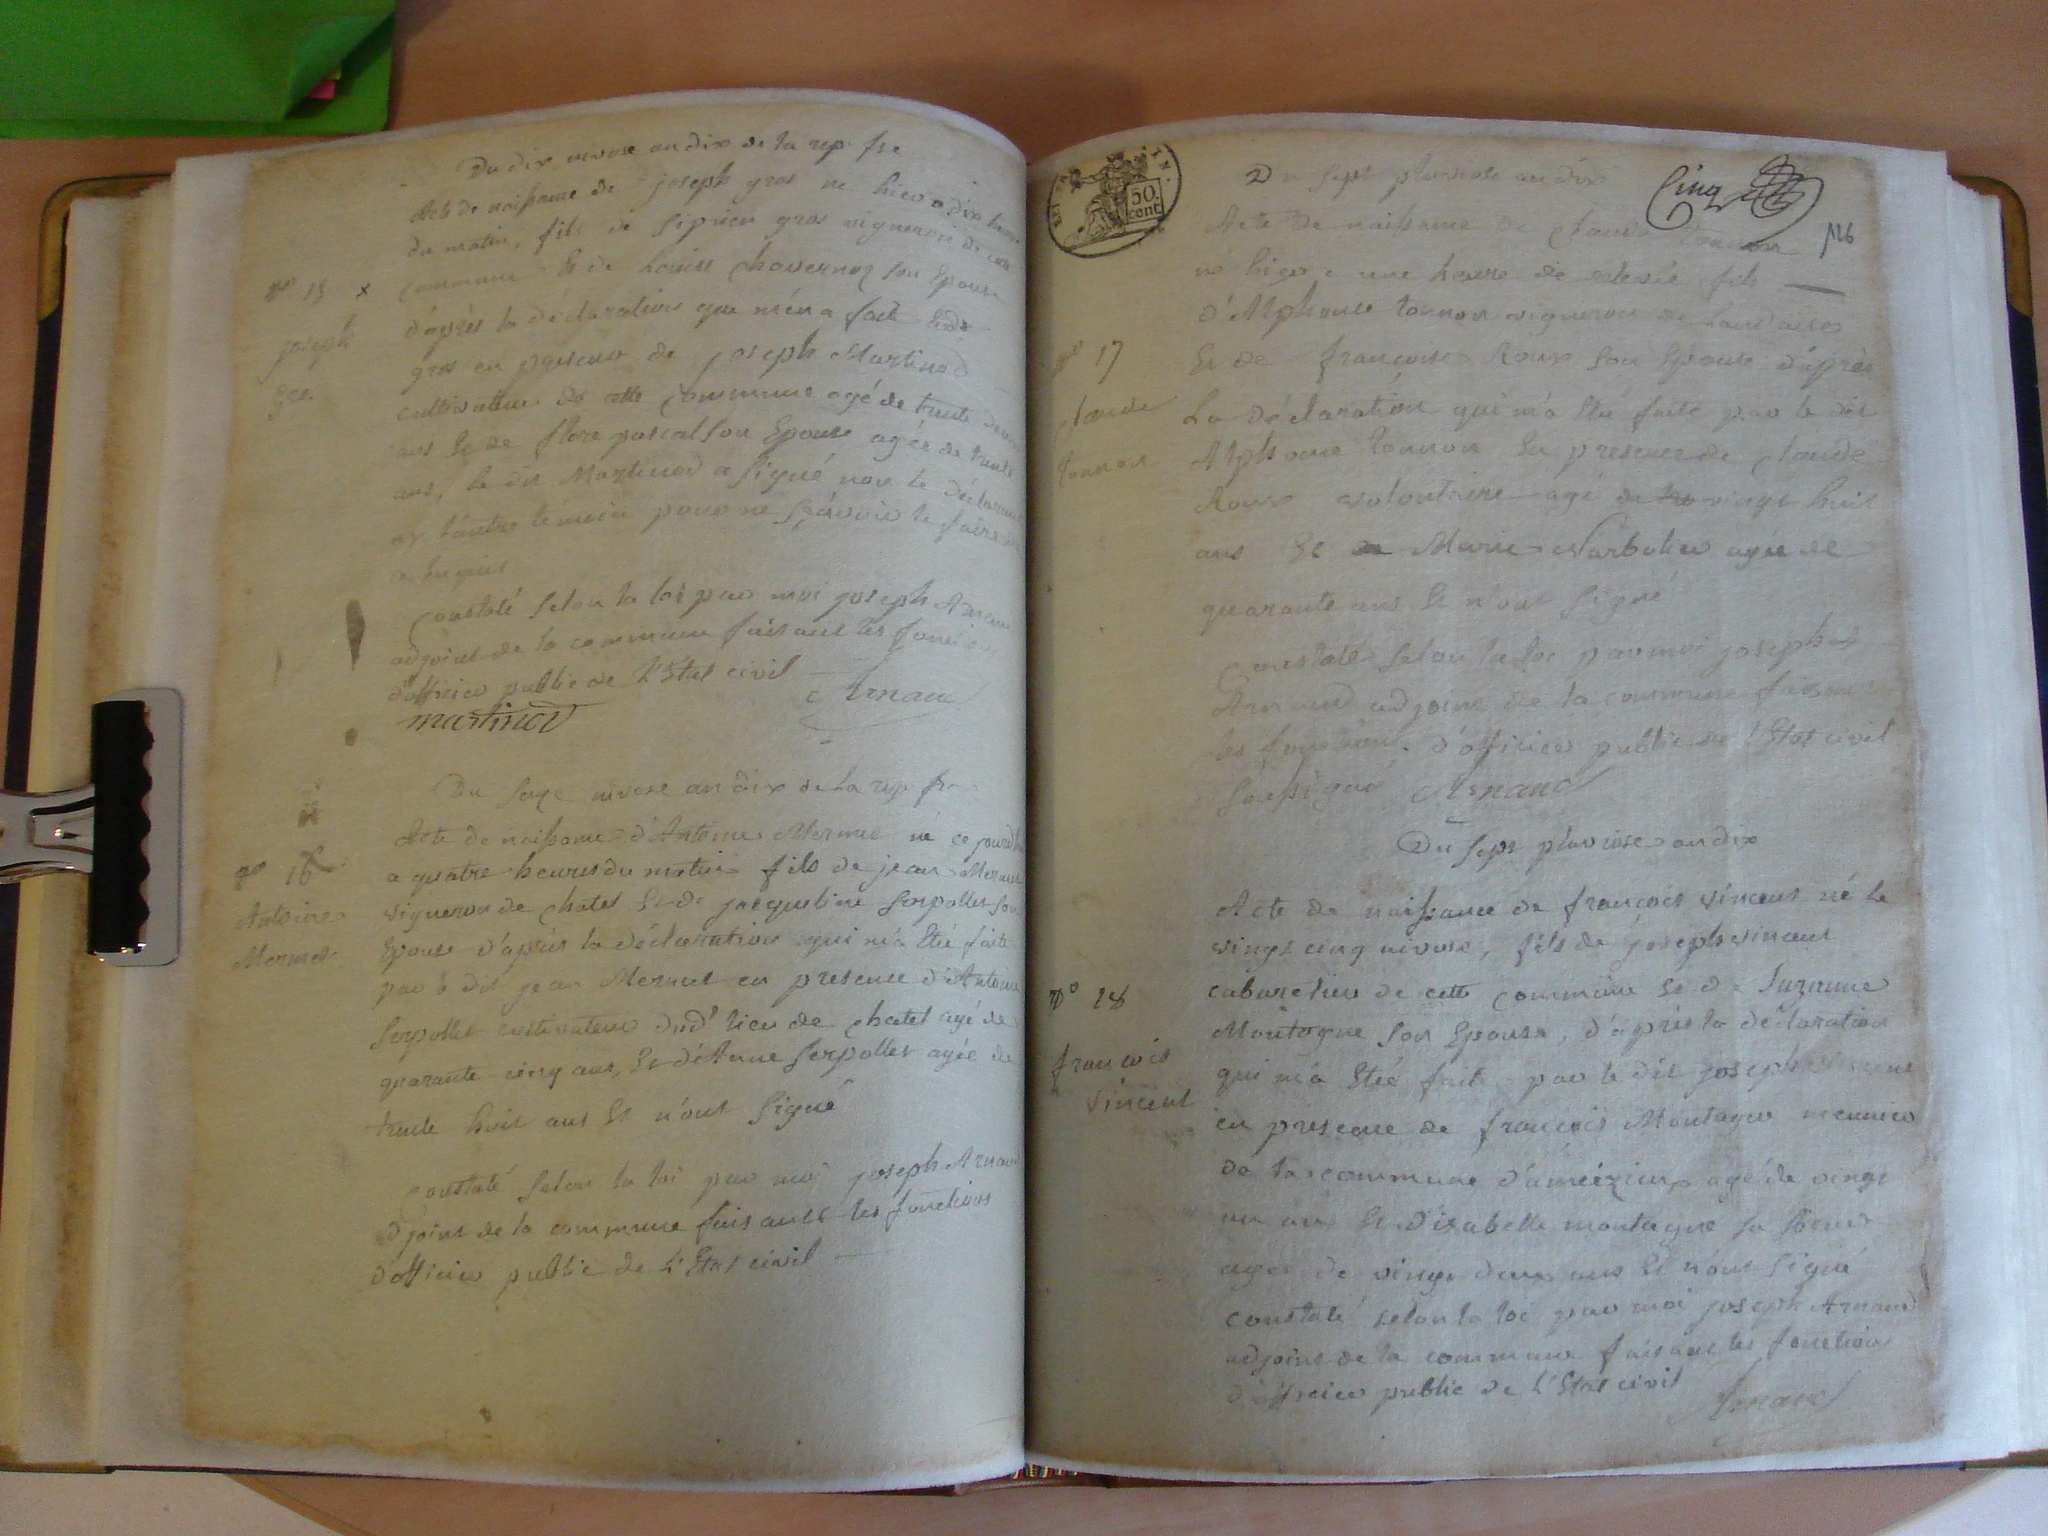 Du dix nivose an dix de la rep. fse
Acte de naissance de joseph gros né hier a dix heures
du matin, fils de Siprien gros vigneron de cette
commune Et de Louise Chavernoz son Epouse
d'après la déclaration que m'en a fait
gros en presence de joseph Martinod
cultivateur de cette commune agé de trente
ans Et de flore pascal son Epouse agée de trente
ans, le dit Martinod a signé non le déclarant
ny l'autre témoin pour ne sçavoir le faire
constaté selon la loi par moi joseph Arnaud
adjoint de la commune faisant les fonctions
d'officier public de l'Etat civil
martinod Arnaud
no 15 x
joseph
gros
Du seze nivose an dix de la rep. fr.
Acte de naissance d'Antoine Mermet né ce jourdhui
a quatre heures du matin fils de jean Mermet
vigneron de chatel Et de jacqueline serpollet son
Epouse d'après la déclaration qui m'a Eté faite
par le dit jean Mermet en presence d'Antoine
serpollet cultivateur dud' lieu de chatel agé de
quarante cinq ans, Et d'Anne serpollet agée de
trente huit ans Et n'ont signé
constaté selon la loi par moi joseph Arnaud
djoint de la commune faisant les fonctions
d'officier public de L'Etat civil
no 16
Antoine
Mermet
50.
cent.
Cinq
126
Du sept pluviose an dix
Acte de naissance de claude tonnon
né hier a une heure de relevée fils
d'Alphonse tonnon vigneron de
Et de françoise Roux son Epouse d'après
La déclaration qui m'a Eté faite par le dit
Alphonse tonnon En presence de claude
Roux volontaire agé de vingt huit
ans Et Marie Narbolier agée de
quarante ans Et n'ont signé
Constaté selon la loi par moi joseph
Arnaud adjoint de la commune faisant
les fonctions d'officier public de l'Etat civil
soussigné Arnaud
no 17
claude
tonnon
Du sept pluviose an dix
Acte de naissance de françois vincent né le
vingt cinq nivose, fils de joseph vincent
cabaretier de cette commune Et de Suzanne
Montagne son Epouse, d'après la déclaration
qui m'a Eté faite par le dit joseph vincent
en presence de françois Montagne meunier
de la commune d'améizieu agé de vingt
un ans Et d'izabelle montagne sa soeur
agée de vingt deux ans Et n'ont signé
constaté selon la loi par moi joseph Arnaud
adjoint de la commune faisant les fonctions
d'officier public de L'Etat civil
Arnaud
no 18
françois
vincent